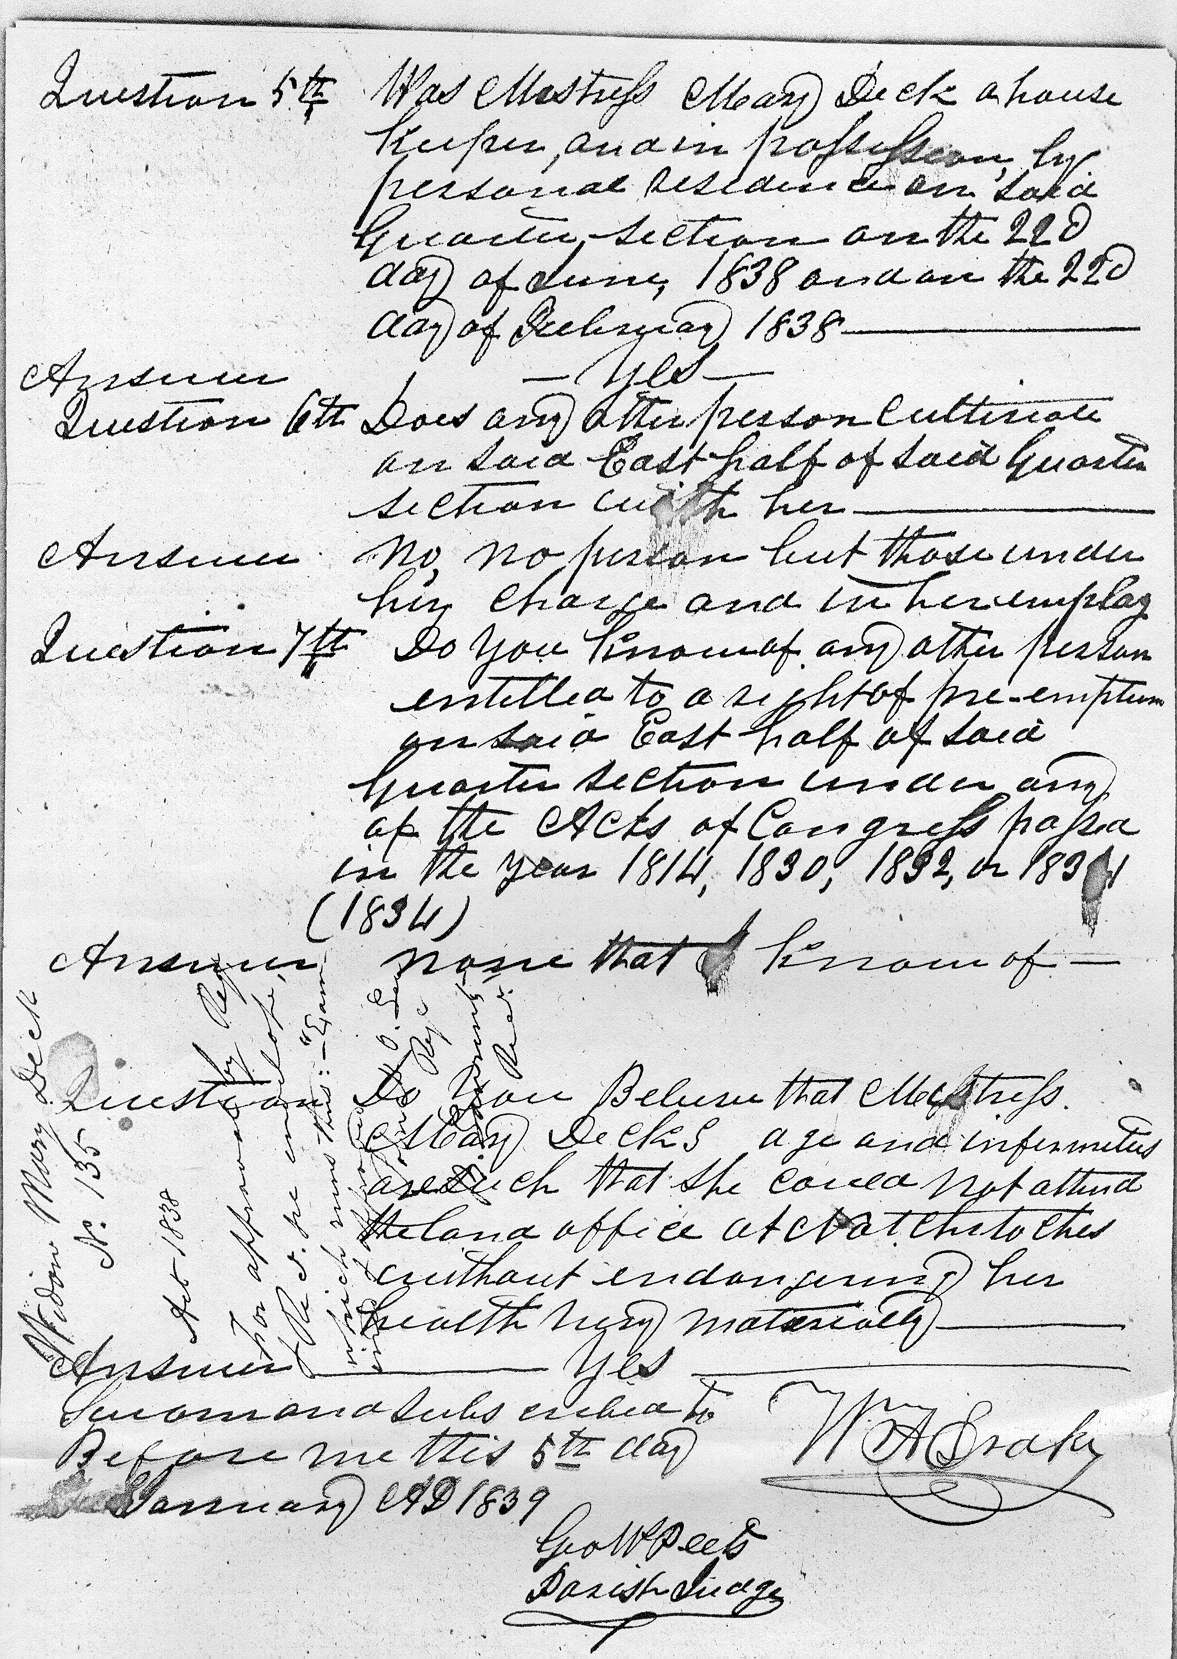 Question 5th Was Mistress Mary Deck a house
keeper, and in possession, by
personal residence on said
Quarter, section on the 22d
day of June, 1838 and on the 22d
day of February 1838
Answer — Yes —
Question 6th Does any other person cultivate
on said East half of said Quarter
section with her
Answer No, no person but those under
her charge and in her employ
Question 7th Do you know of any other person
entitled to a right of pre-emption
on said East half of said
Quarter section under any
of the Acts of Congress passed
in the year 1814, 1830, 1832, or 1834
(1834)
Answer none that I know of —
Question Do you Believe that Mistress
Mary Decks age and infirmities
are such that she could not attend
the land office at Natchitoches
without endangering her
health very materially
Answer Yes
Sworn and subscribed to
Before me this 5th day
January AD 1839
W A Drake
Geo W Peets
Parish Judge
"Widow Mary Deck
No. 135
Act 1838
For approval by Reg
& Rec. see envelope,
which runs thus:— "Exam